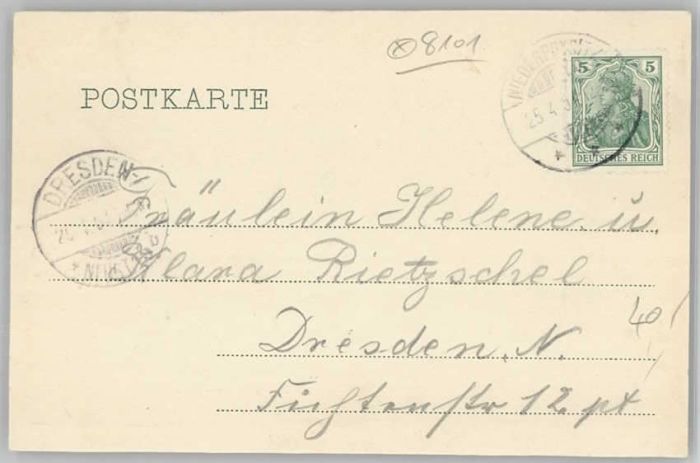 ⊗8101
POSTKARTE
5 5
DEUTSCHES REICH
25.4.
DRESDEN-
Fräulein Helene u.
Klara Rietzschel
40
Dresden. N.
Fichtenstr 12 pt